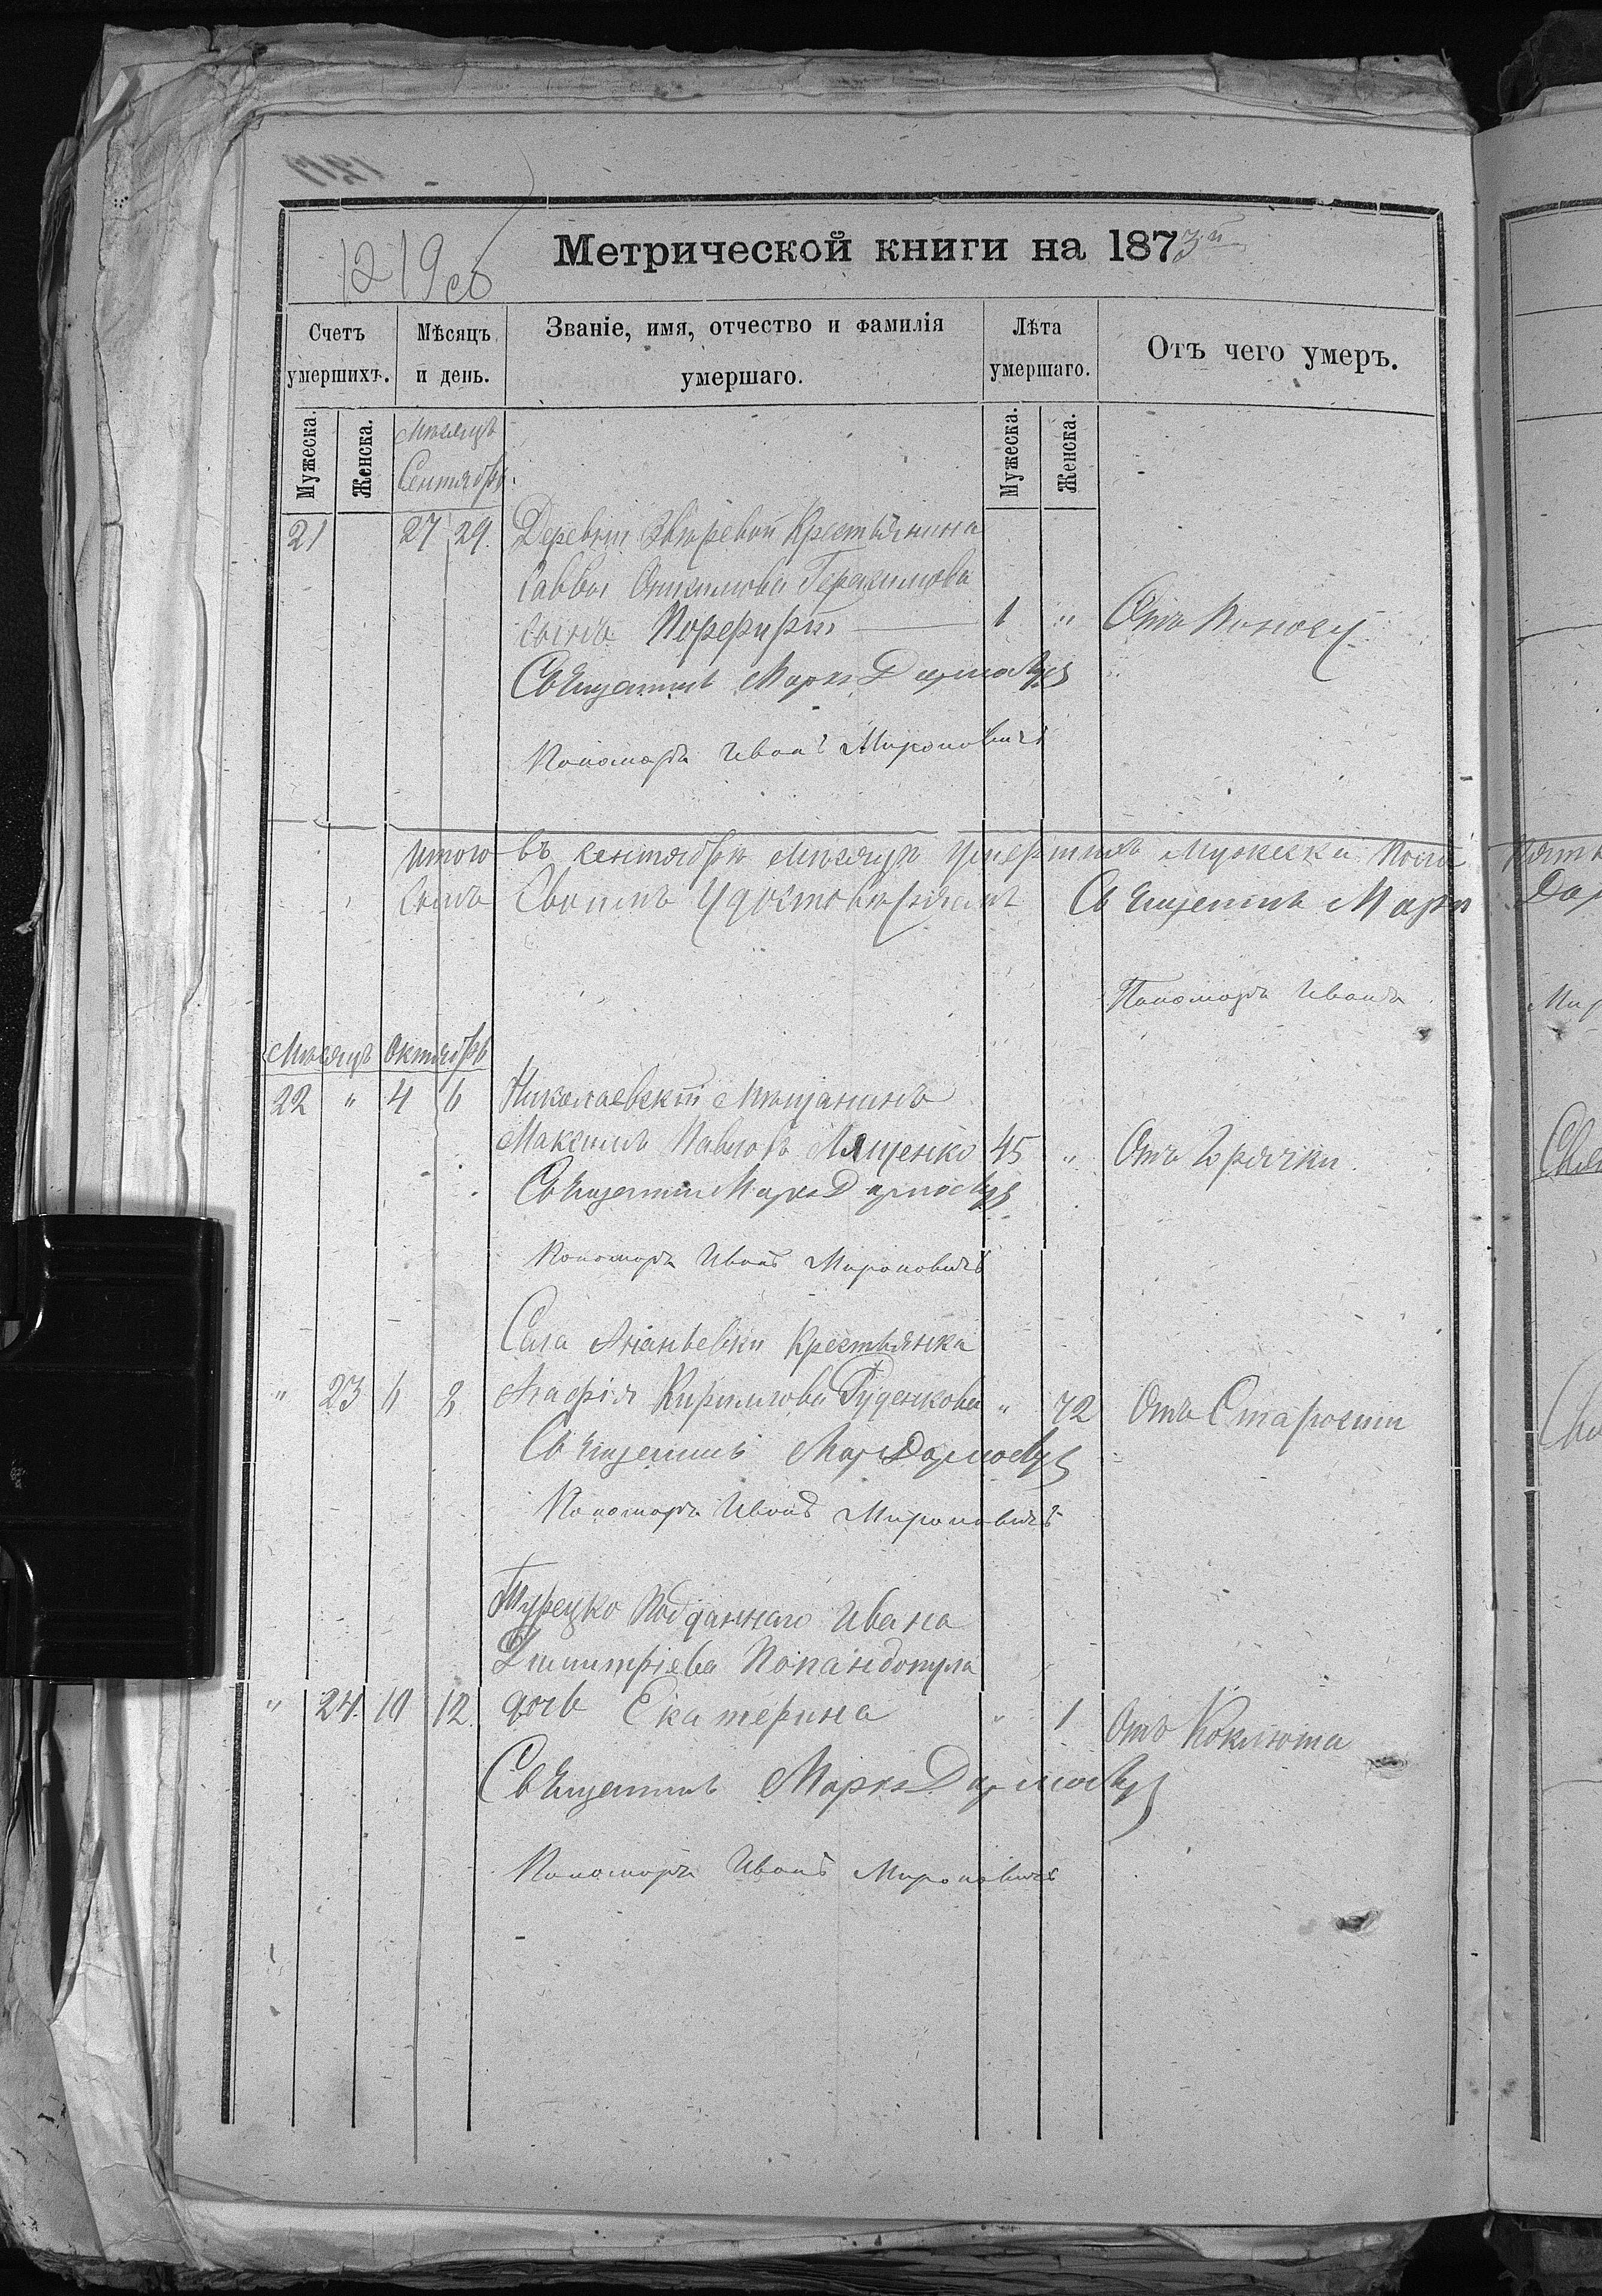 1219 об
Метрической книги на 1873й
Счетъ умершихъ.
Мѣсяцъ и день.
Званіе, имя, отчество и фамилія умершаго.
Лѣта умершаго.
Отъ чего умеръ.
Мужеска.
Женска.
Мѣсяцъ
Сентябрь.
Мужеска.
Женска.
21 27 29. Деревни Звѣревой Крестьянина
Саввы Герасимова
сынъ Порфирій 1 " Отъ поносу
Священникъ Маркъ
Пономарь Иванъ Мироновичъ
Итого въ сентябрѣ мѣсяцѣ умершихъ мужеска пола
Священникъ Маркъ
Пономарь Иванъ
Мѣсяцъ Октябрь
22 " 4 6 Николаевскій Мѣщанинъ
Максимъ Павловъ Лященко 45 " Отъ горячки.
Священникъ Маркъ
Пономарь Иванъ Мироновичъ
Села Ананьевки Крестьянка
" 23 6 8 Агафія Кириллова Руденкова " 72 Отъ Старости
Священникъ Маркъ
Пономарь Иванъ Мироновичъ
Турецко подданнаго Ивана
Димитріева Попандопула
" 24. 10 12. дочь Екатерина " 1 Отъ Коклюша
Священникъ Маркъ
Пономарь Иванъ Мироновичъ